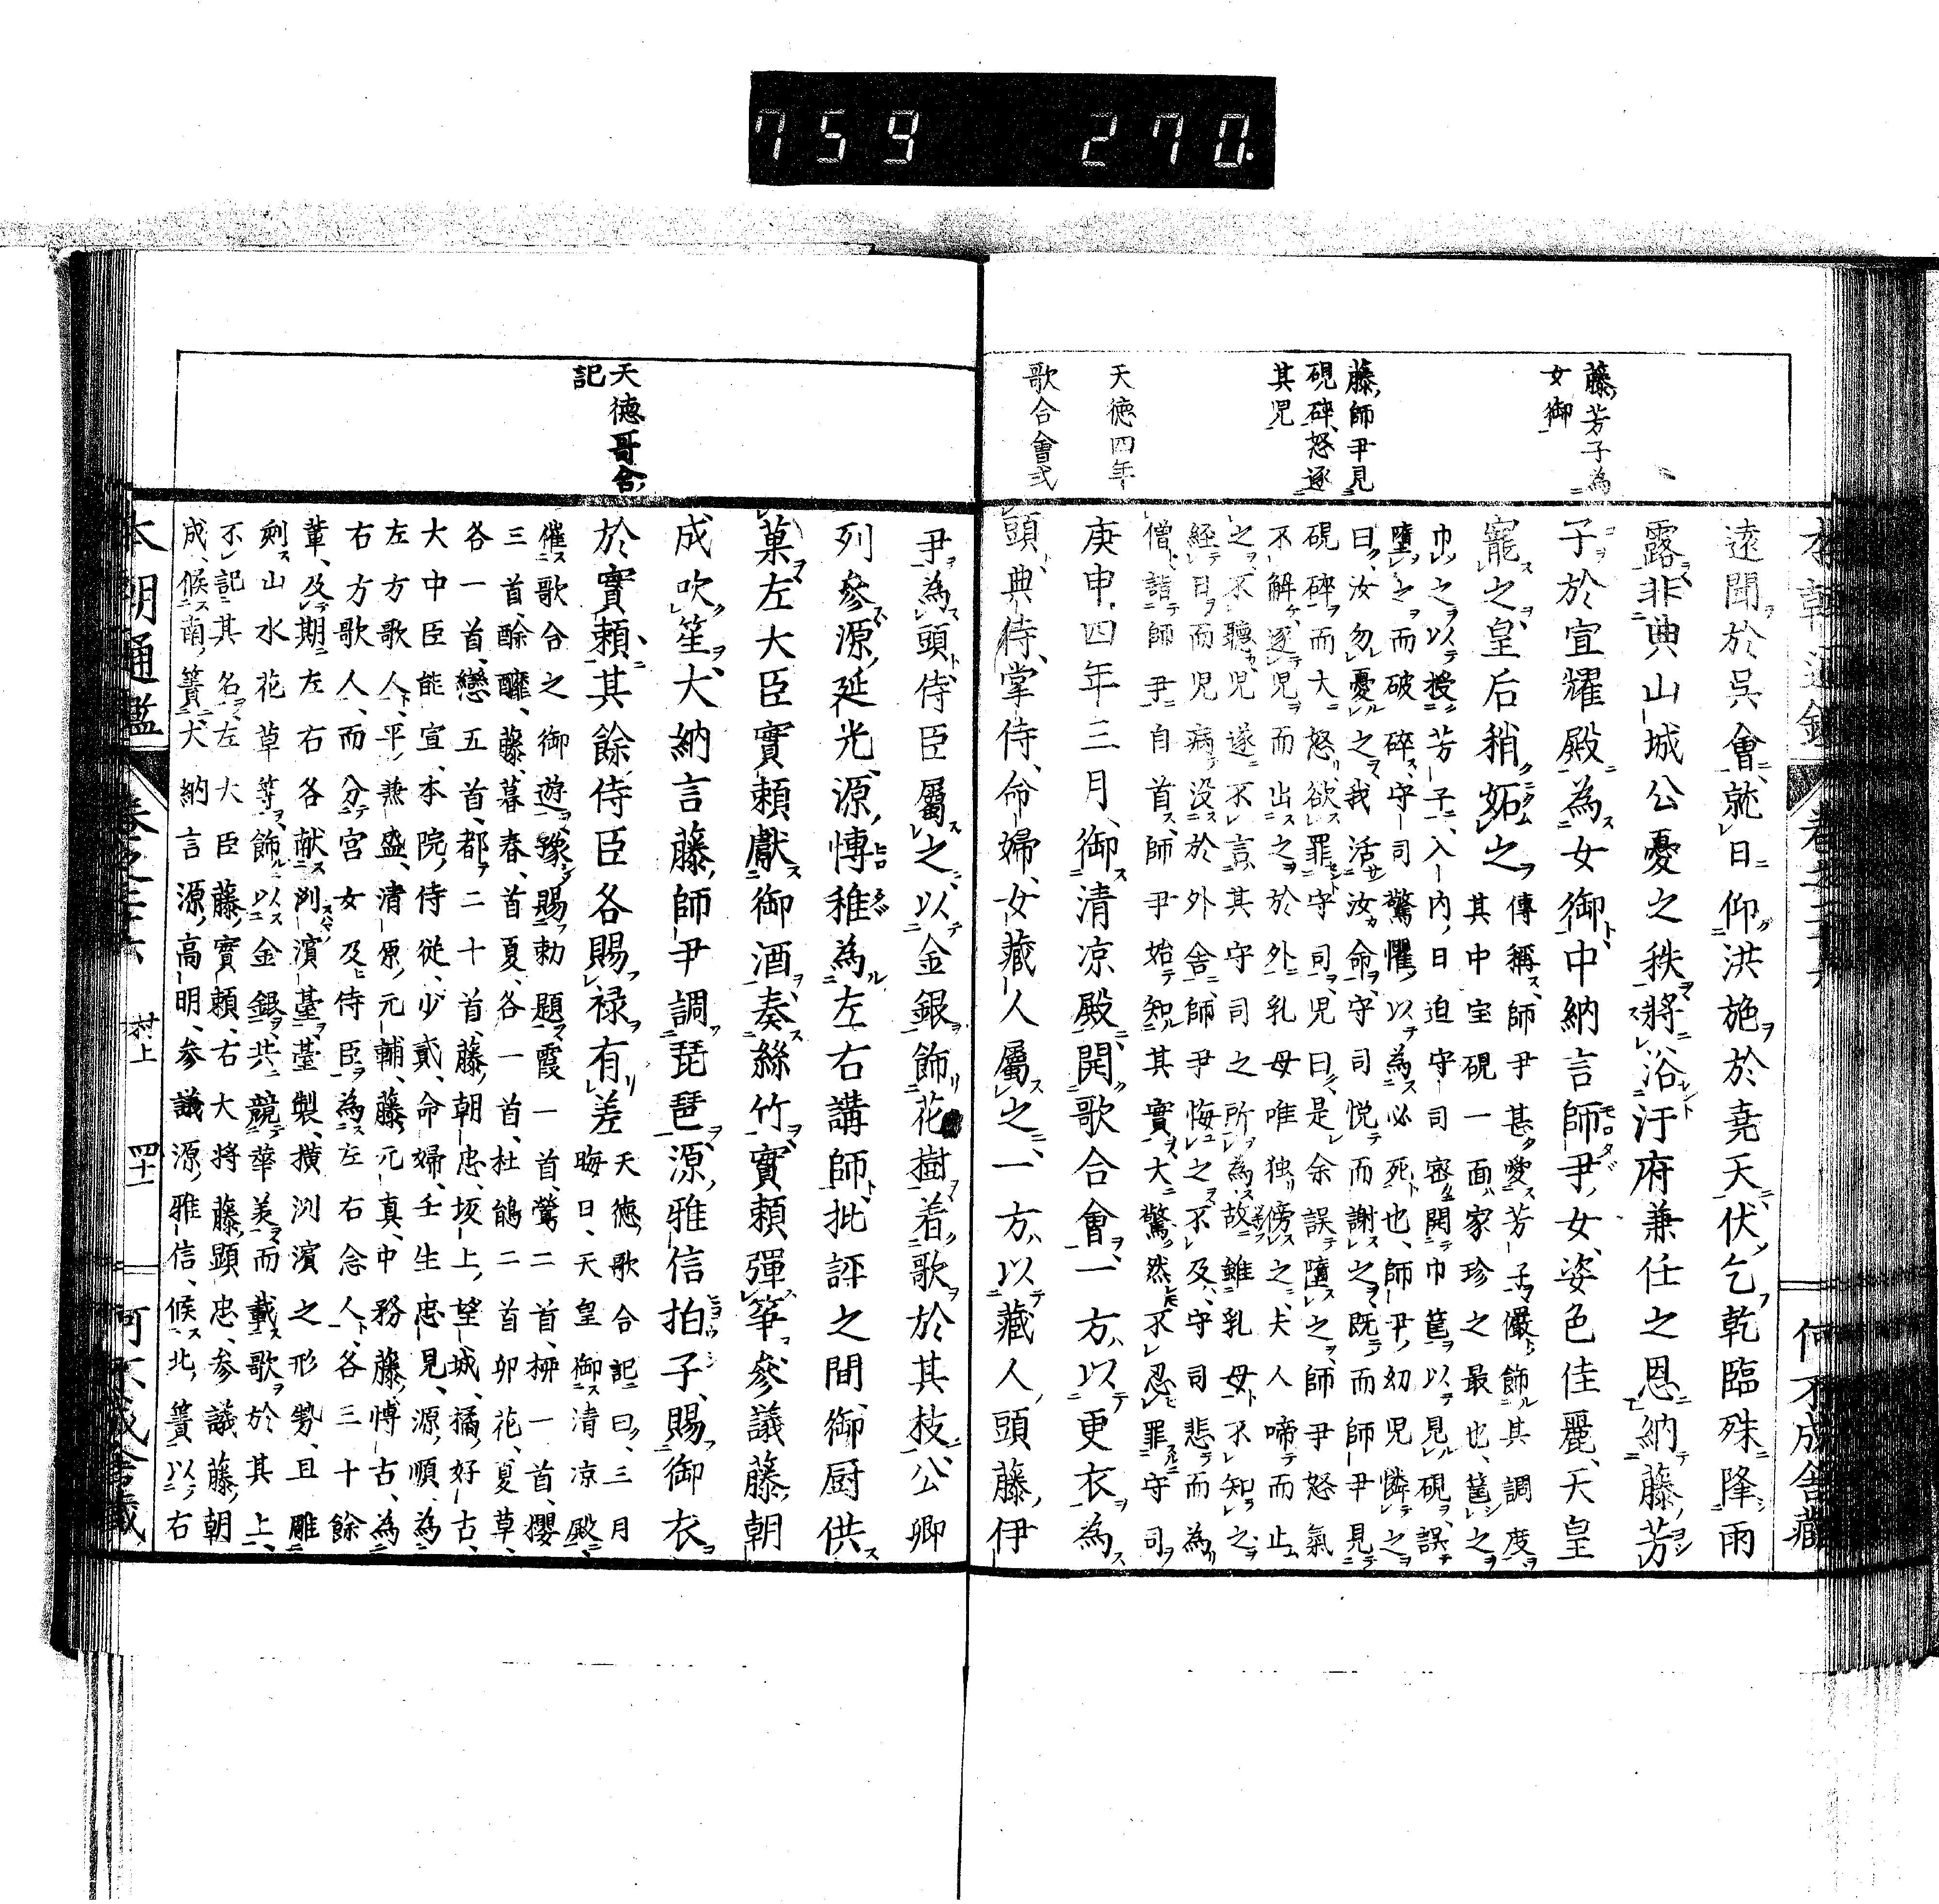 759 270.
藤芳子為
女御
藤師尹見
硯碎怒逐
其児
天徳四年
歌合會式
遠聞於呉會、就日仰洪施於堯天、伏乞乾臨殊降雨
露、非典山城公憂之秩、將浴汙府兼任之恩、納藤芳
子於宣耀殿為女御、中納言師尹女、姿色佳麗、天皇
寵之、皇后稍妬之
傳稱、師尹甚愛芳子、儼飾其調度、
其中宝硯一面、家珍之最也、筥之
巾之以授芳子、入内日迫、守司密開巾筥以見硯、誤
墮之而破碎、守司驚懼、以為必死也、師尹幼児憐之
曰、汝勿憂之、我活汝命、守司悦而謝之、既而師尹見
硯碎而大怒、欲罪守司、児曰、是余誤墮之、師尹怒氣
不解、逐児而出之於外、乳母唯独傍之、夫人啼而止
之不聽、児遂不言其守司之所為、故雖乳母不知之、
経日而児病没於外舎、師尹悔之不及、守司悲而為
僧、詣師尹自首、師尹始知其實、大驚然不忍罪守司
庚申、四年三月、御清凉殿、開歌合會、一方以更衣為
頭、典侍、掌侍、命婦、女藏人屬之、一方以藏人頭藤伊
本朝通鑑 卷之二十六 何不成舎藏
天徳哥合
記
尹為頭、侍臣屬之、以金銀飾花樹、着歌於其枝、公卿
列參、源延光、源博雅為左右講師、批評之間、御厨供
菓、左大臣實頼獻御酒、奏絲竹、實頼彈筝、參議藤朝
成吹笙、大納言藤師尹調琵琶、源雅信拍子、賜御衣
於實頼、其餘侍臣各賜禄有差
天徳歌合記曰、三月
晦日、天皇御清凉殿、
催歌合之御遊、豫賜勅題、霞一首、鶯二首、柳一首、櫻
三首、酴醾、藤、暮春、首夏、各一首、杜鵑二首、卯花、夏草、
各一首、戀五首、都二十首、藤朝忠、坂上望城、橘好古、
大中臣能宣、本院侍從、少貳命婦、壬生忠見、源順、為
左方歌人、平兼盛、清原元輔、藤元真、中務、藤博古、為
右方歌人、而分宮女及侍臣為左右念人、各三十餘
輩、及期左右各献洲濱臺、臺製、摸洲濱之形勢、且雕
刻山水花草等、飾以金銀、共競華美、而載歌於其上、
不記其名、左大臣藤實頼、右大将藤顕忠、参議藤朝
成、候南簀、大納言源高明、参議源雅信、候北簀、以右
本朝通鑑 卷之二十六 村上 四十二 何不成舎藏